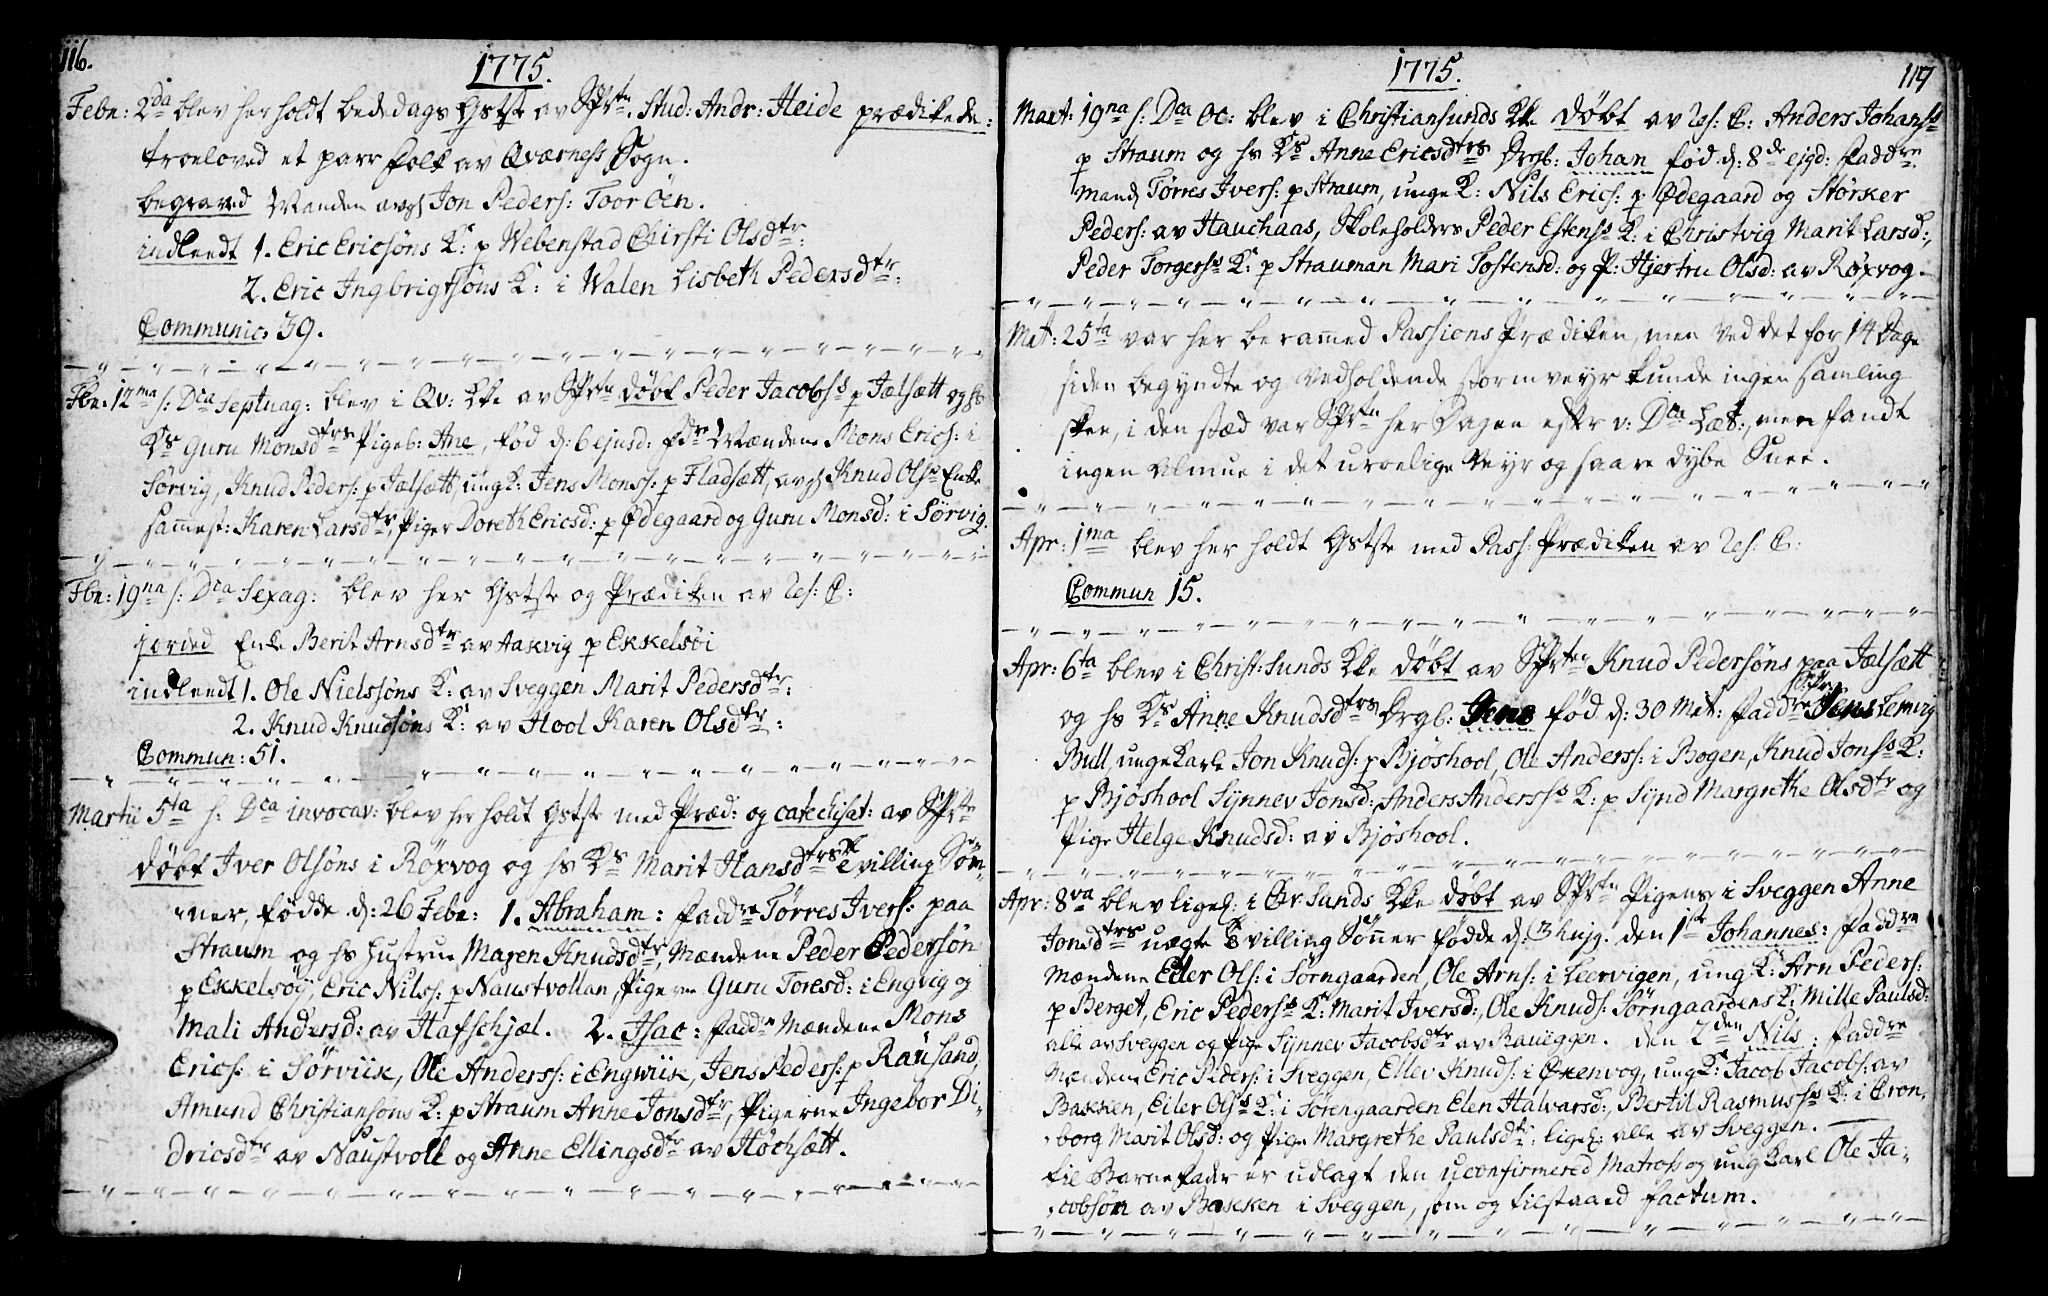 116.
1775.
Febr: 2da blev her holdt bededags Gstste av SPrtn. Stud: Andr: Heide prædikede:
troeloved et parr folk av Qværness Sogn.
begraved Manden avgl Jon Peders: Toor Öen.
indleedt 1. Eric Ericsöns K: p Webenstad Chirsti Olsdtr:
2. Eric Ingbrigtsöns K: i Walen Lisbeth Pedersdtr:
Communic: 39.
Fbr: 12ma s: Dca Septuag: blev i Qv: Kke av SPrtn döbt Peder Jacobss p Jælsætt og hs
Ks Guru Monsdtrs Pigeb: Ane, fød d: 6 ejusd: fdr Mændene Mons Erics: i
Sörvig, Knud Peders: p Jælsætt, ung K: Jens Monss: p Fladsætt, avgl Knud Olss Enke
sammest: Karen Larsdtr, Piger Doreth Ericsd: p Ødegaard og Guru Monsd: i Sörvig.
Fbr: 19na s: Dca Sexag: blev her Gstste og Prædiken av Res: C:
jorded Enke Berit Arnsdtr av Aakvig p Ekkelsöi
indleedt 1. Ole Nielssöns K: av Sveggen Marit Pedersdtr:
2. Knud Knudsöns K: av Hool Karen Olsdtr:
Commun: 51.
Martii 5ta s: Dca invocav: blev her holdt Gstste med Præd: og catechisat: av SPrtn
döbt Iver Olsöns i Röxvog og hs Ks Marit Hansdtrs tvilling Søn-
ner, fødde d: 26 Febr: 1. Abraham: faddre Törres Ivers: paa
Straum og hs Hustrue Maren Knudsdtr, Mændene Peder Pedersön
p Ekkelsöy, Eric Nilss: p Naustvollan, Pigerne Guru Toresd: i Engvig og
Mali Andersd: av Hafschjæl. 2. Isac: faddr Mændene Mons
Erics: i Sörviik, Ole Anderss: i Engwiik, Jens Peders: p Rausand,
Amund Christiansöns K: p Straum Anne Jonsdtr, Pigerne Ingebor Di-
dricsdtr av Naustvoll og Anne Ellingsdtr av Höchsætt.
1775.
117
Mart: 19na s: Dca Oc: blev i Christiansunds Kke döbt av Res: C: Anders Johanss
p Straum og hs Ks Anne Ericsdtrs Drgb: Johan fød d: 8de ejgd: faddre
mand Törres Ivers: p Straum, unge K: Nils Erics: p Ødegaard og Störker
Peders: av Hauchaas, Skoleholders Peder Estenss K: i Christvig Marit Larsd:,
Peder Torgerss K: p Strauman Mari Tostensd: og P: Hjertru Olsd: av Röxvog.
Mrt: 25ta var her berammed Passions Prædiken, men ved det for 14 Dage
siden begyndte og vedholdende stormveyr kunde ingen samling
skee, i den stæd var SPrtn her Dagen efter v: Dca Læt:, men fandt
ingen Almue i det uroelige Veyr og saare dybe Snee.
Apr: 1ma blev her holdt Gstste med Pass: Prædiken av Res: C:
Commun 15.
Apr: 6ta blev i Christ:Sunds Kke döbt av SPrtn Knud Pedersöns paa Jælsætt
og hs Ks Anne Knudsdtrs Drgb: Jens fød d: 30 Mrt: faddre SPr: Jens Lemvig
Bull, unge Karle Jon Knuds: p Bjöshool, Ole Anderss: i Bogen, Knud Jonss K:
p Bjöshool Synnev Jonsd:, Anders Anderss K: p Synd Margrethe Olsdtr og
Pige Helge Knudsd: av Bjöshool.
Apr: 8va blev ligel: i Chr.Sunds Kke döbt av SPrtn Pigens i Sveggen Anne
Jonsdtrs uægte tvilling Sönner fødde d: 3 hujg. den 1st Johannes: faddre
Mændene Eiler Ols: i Sörngaarden, Ole Arns: i Leervigen, ung K: Arn Peders:
p Berget, Eric Pederss K: Marit Iversd:, Ole Knuds: Sörngaardens K: Mille Paulsd:
alle av Sveggen og Pige Synnev Jacobsdtr av Raueggen. den 2den Nils: faddre
Mændene Eric Peders: i Sveggen, Ellev Knuds: i Ørenvog, ung K: Jacob Jacobs: av
Bakken, Eiler Olss K: i Sörengaarden Elen Halvarsd:, Bertil Rasmuss K: i Cron-
borg Marit Olsd: og Pige Margrethe Paulsdtr: ligel: alle av Sveggen.
til Barnefader er udlagt den uconfirmered Matros og ung Karl Ole Ja-
cobsön av Bakken i Sveggen, som og tilstaaed factum.